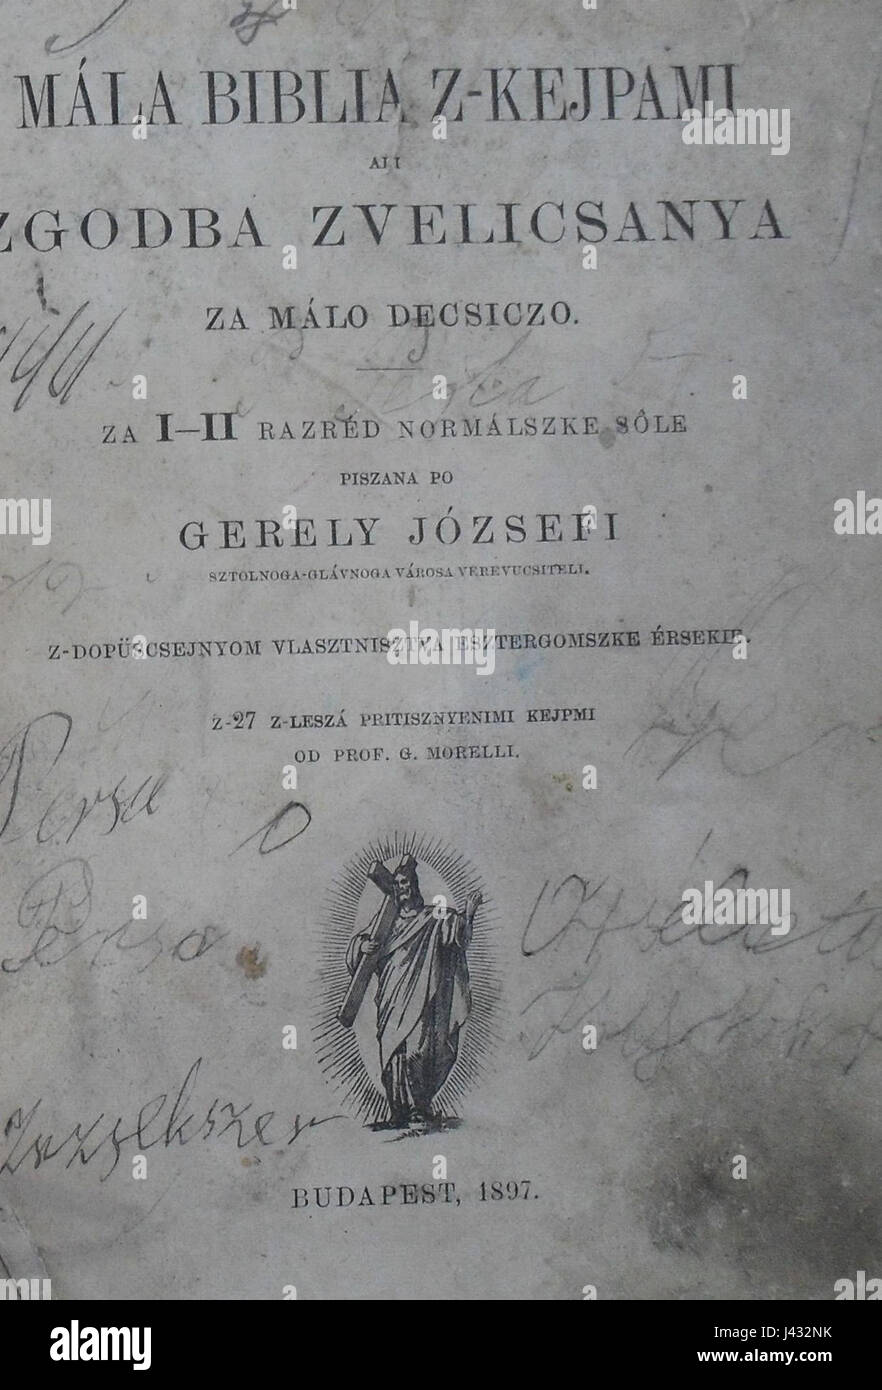 MÁLA BIBLIA Z-KEJPAMI
ALI
ZGODBA ZVELICSANYA
ZA MÁLO DECSICZO.
ZA I—II RAZRÉD NORMÁLSZKE SÔLE
PISZANA PO
GERELY JÓZSEFI
SZTOLNOGA-GLÁVNOGA VÁROSA VEREVUCSITELI.
Z-DOPÜSCSEJNYOM VLASZTNISZTVA ESZTERGOMSZKE ÉRSEKIE.
Z-27 Z-LESZÁ PRITISZNYENIMI KEJPMI
OD PROF. G. MORELLI.
Persa
Persa
BUDAPEST, 1897.
alamy
Image ID: J432NK
www.alamy.com